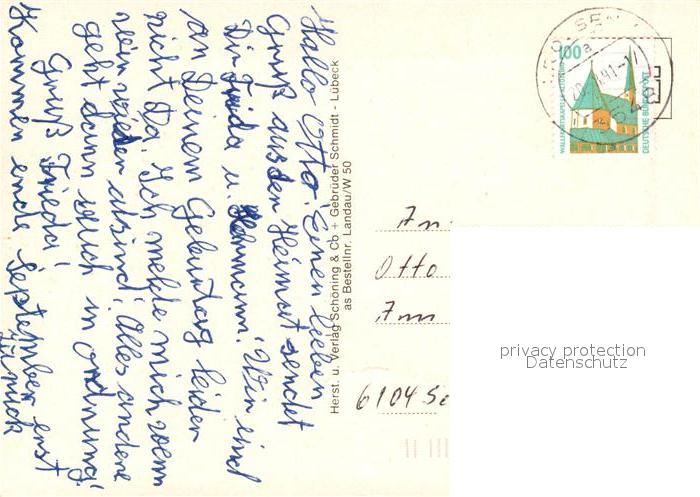 Hallo Otto! Einen lieben
Gruß aus der Heimat sendet
Dir Frieda u. Hermann! Wir sind
an Deinem Geburtstag leider
nicht Da. Ich melde mich wenn
wir wieder da sind! Alles andere
geht dann auch in ordnung!
Gruß Frieda!
Kommen ende September erst
zurück
Herst. u. Verlag Schöning & Co + Gebrüder Schmidt - Lübeck
as Bestellnr. Landau/W 50
100
WALLFAHRTSKAPELLE ALTÖTTING
DEUTSCHE BUNDESPOST
An
Otto
Am
6104 Se
privacy protection
Datenschutz